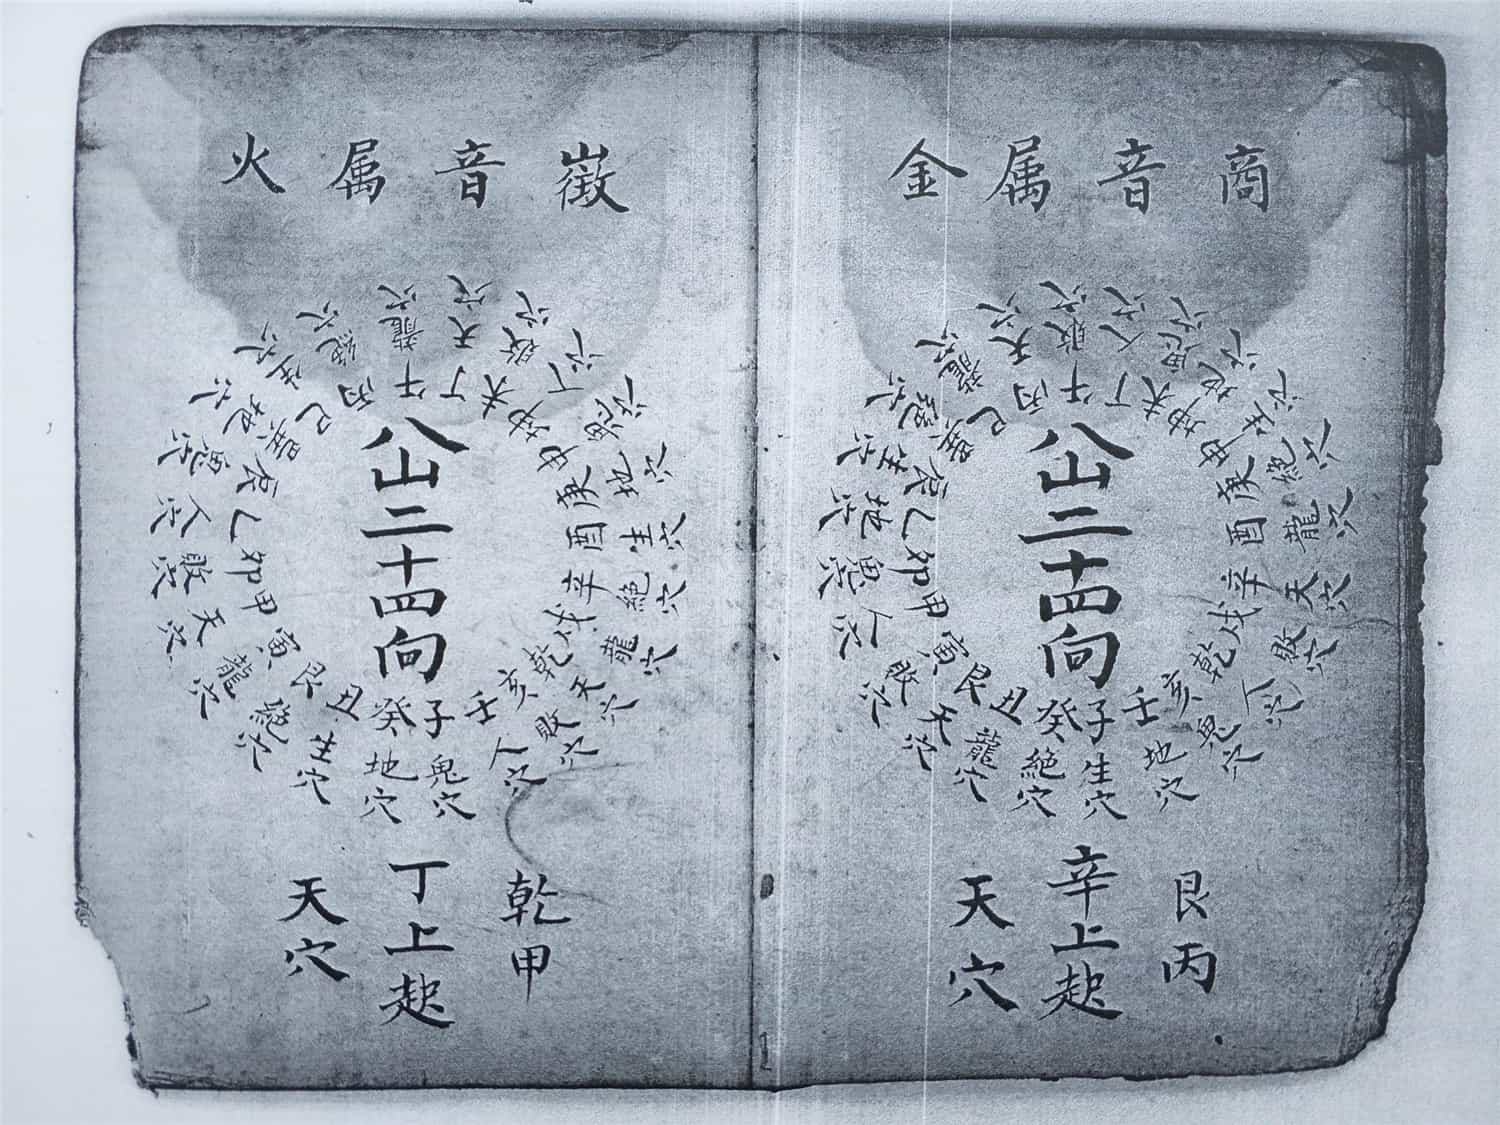 商音属金
午敗穴
丁人穴
未鬼穴
坤地穴
申生穴
庚絕穴
酉龍穴
辛天穴
戌敗穴
乾人穴
亥鬼穴
壬地穴
子生穴
癸絕穴
丑龍穴
艮天穴
寅敗穴
甲人穴
卯鬼穴
乙地穴
辰生穴
巽絕穴
巳龍穴
丙天穴
八山二十四向
艮丙
辛上起
天穴
徵音属火
午龍穴
丁天穴
未敗穴
坤人穴
申鬼穴
庚地穴
酉生穴
辛絕穴
戌龍穴
乾天穴
亥敗穴
壬人穴
子鬼穴
癸地穴
丑生穴
艮絕穴
寅龍穴
甲天穴
卯敗穴
乙人穴
辰鬼穴
巽地穴
巳生穴
丙絕穴
八山二十四向
乾甲
丁上起
天穴